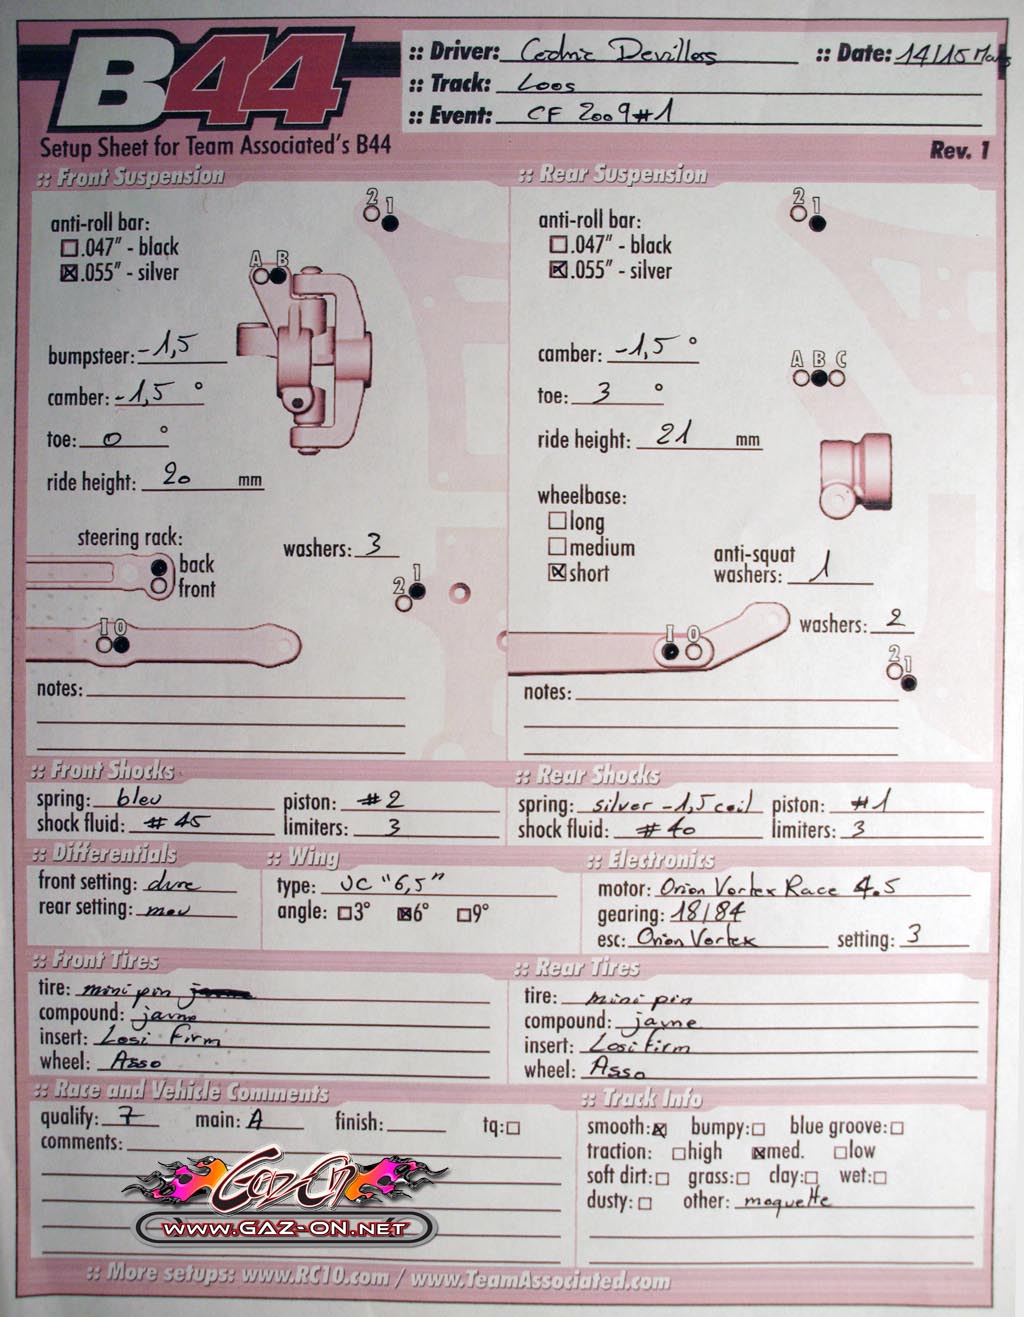 B44
:: Driver: Cedric Devillos
:: Date: 14/15 Mars
:: Track: Loos
:: Event: CF 2009 #1
Setup Sheet for Team Associated's B44
Rev. 1
:: Front Suspension
anti-roll bar:
.047" - black
.055" - silver
2 1
A B
bumpsteer: -1,5
camber: -1,5 °
toe: 0 °
ride height: 20 mm
steering rack:
back
front
washers: 3
2 1
I O
notes:
:: Rear Suspension
anti-roll bar:
.047" - black
.055" - silver
2 1
camber: -1,5 °
A B C
toe: 3 °
ride height: 21 mm
wheelbase:
long
medium
short
anti-squat
washers: 1
washers: 2
I O
2 1
notes:
:: Front Shocks
spring: bleu piston: #2
shock fluid: #45 limiters: 3
:: Rear Shocks
spring: silver -1,5 coil piston: #1
shock fluid: #40 limiters: 3
:: Differentials
front setting: dure
rear setting: mou
:: Wing
type: JC "6,5"
angle: 3° 6° 9°
:: Electronics
motor: Orion Vortex Race 4.5
gearing: 18/84
esc: Orion Vortex setting: 3
:: Front Tires
tire: mini pin
compound: jaune
insert: Losi Firm
wheel: Asso
:: Rear Tires
tire: mini pin
compound: jaune
insert: Losi Firm
wheel: Asso
:: Race and Vehicle Comments
qualify: 7 main: A finish: tq:
comments:
GazOn
www.GAZ-ON.NET
:: Track Info
smooth: bumpy: blue groove:
traction: high med. low
soft dirt: grass: clay: wet:
dusty: other: moquette
:: More setups: www.RC10.com / www.TeamAssociated.com